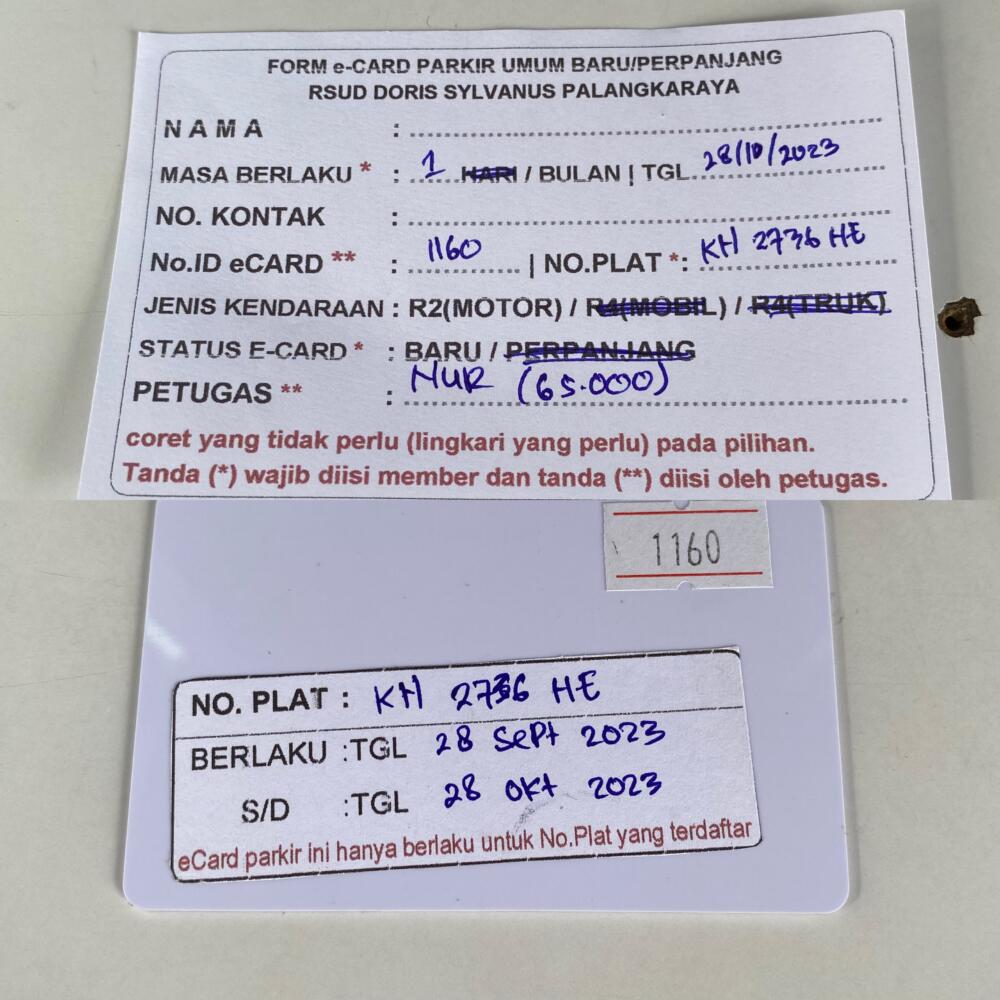 FORM e-CARD PARKIR UMUM BARU/PERPANJANG
RSUD DORIS SYLVANUS PALANGKARAYA
NAMA :
MASA BERLAKU * : 1 HARI / BULAN | TGL. 28/10/2023
NO. KONTAK :
No.ID eCARD ** : 1160 | NO.PLAT *: KH 2736 HE
JENIS KENDARAAN : R2(MOTOR) / R4(MOBIL) / R4(TRUK)
STATUS E-CARD * : BARU / PERPANJANG
PETUGAS ** : NUR (65.000)
coret yang tidak perlu (lingkari yang perlu) pada pilihan.
Tanda (*) wajib diisi member dan tanda (**) diisi oleh petugas.
1160
NO. PLAT : KH 2736 HE
BERLAKU :TGL 28 Sept 2023
S/D :TGL 28 Okt 2023
eCard parkir ini hanya berlaku untuk No.Plat yang terdaftar